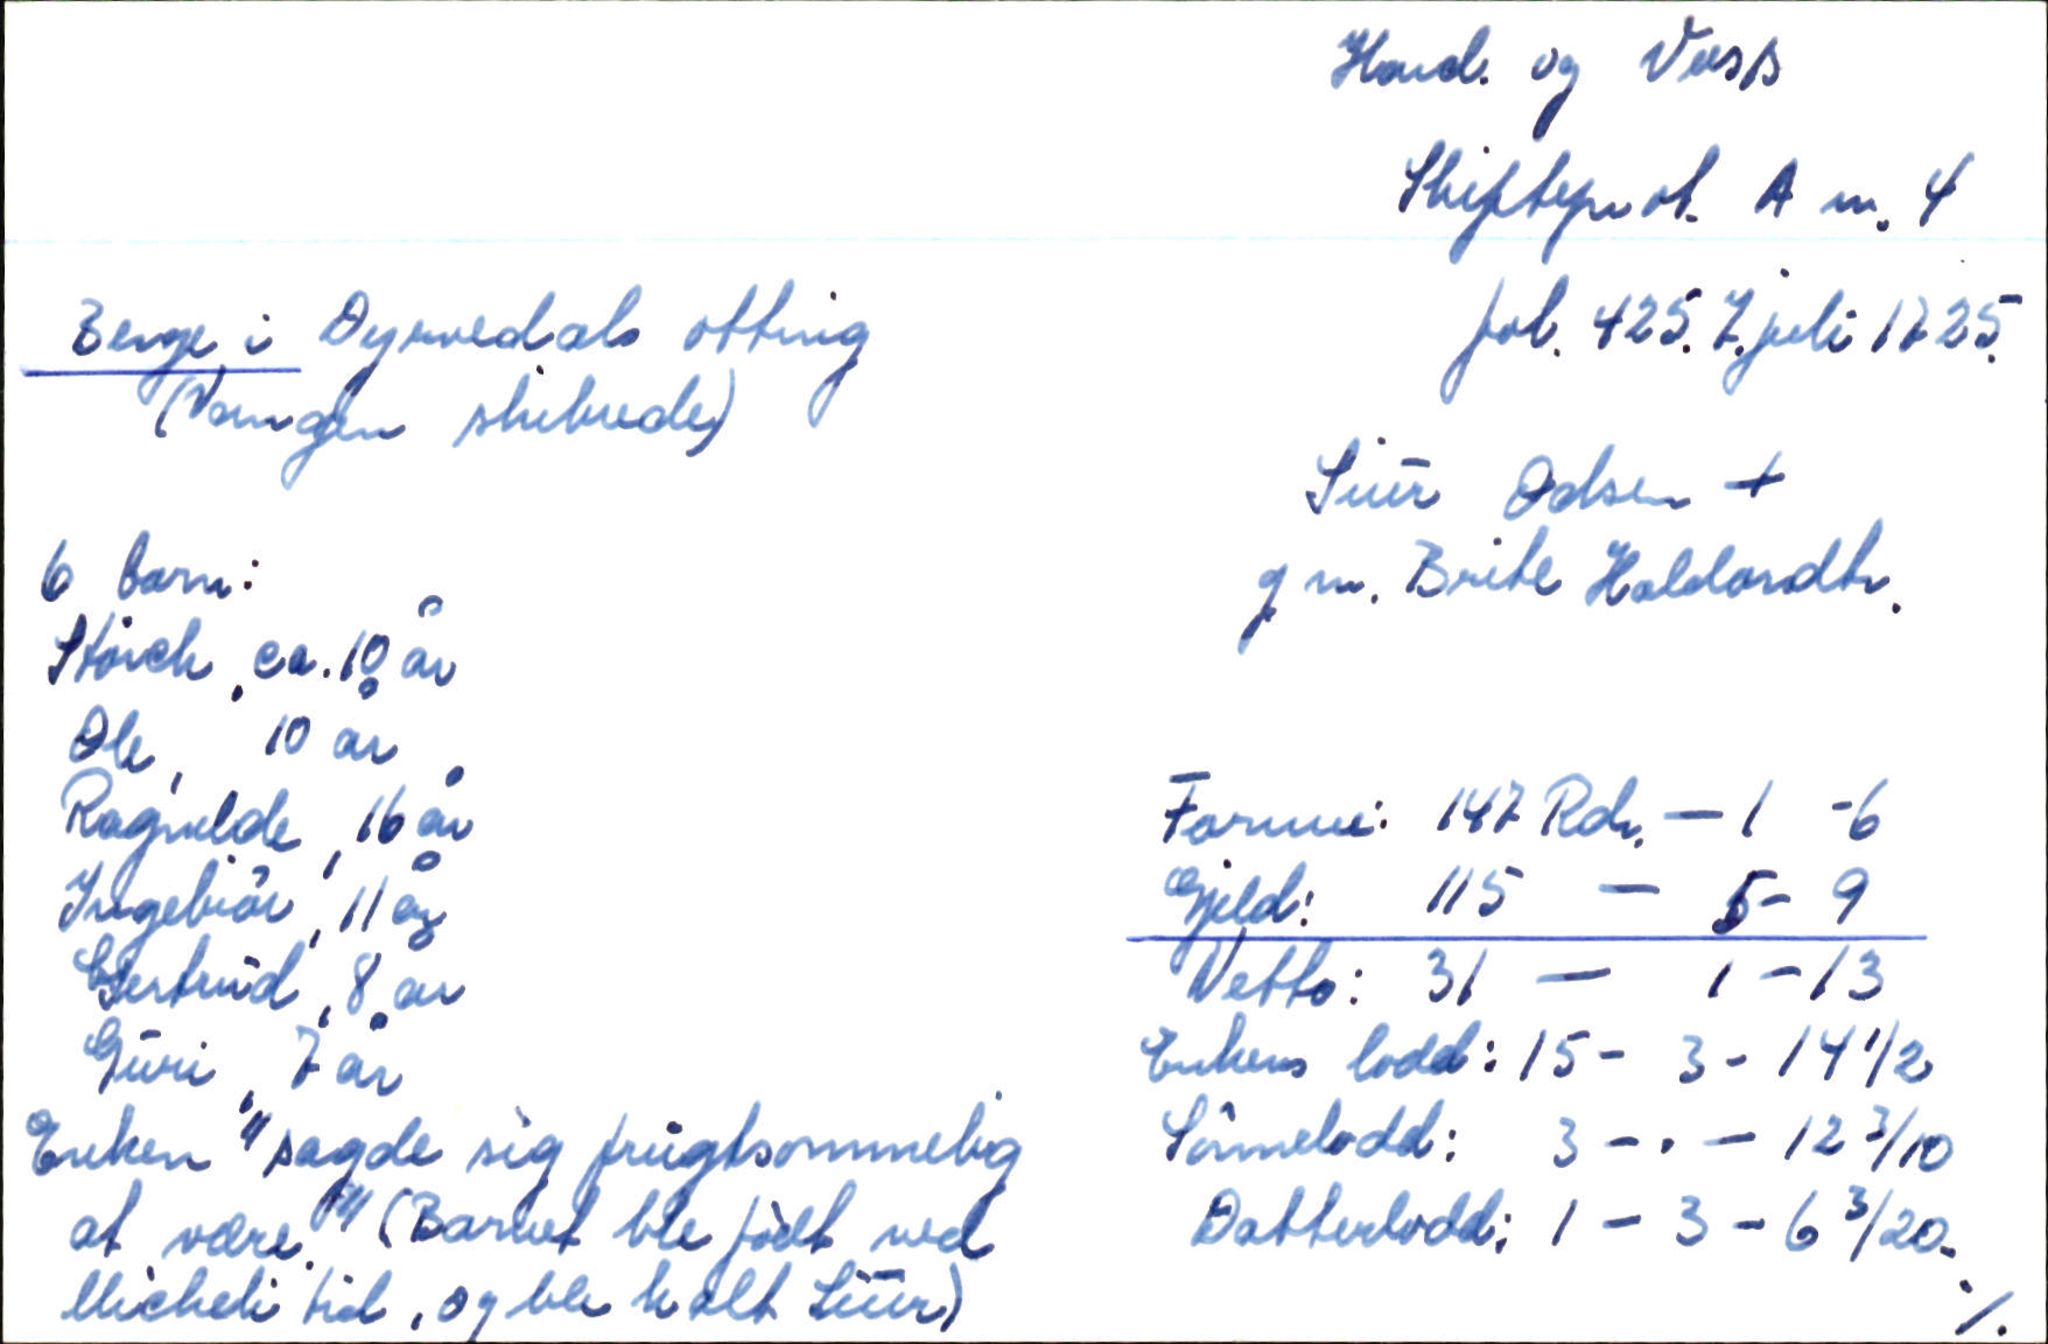 Hard. og Voss
Skifteprot. A nr. 4
fol. 425. 7. juli 1725.
Berge i Dyrvedals otting
(Vangen skibrede)
Siúr Odsen +
g m. Brite Haldordtr.
6 barn:
Störck, ca. 10 år
Ole, 10 år
Ragnilde, 16 år
Ingebiör, 11 år
Giertrúd, 8 år
Gúri, 7 år
Enken "sagde sig frúgtsommelig
at være" (Barnet ble født ved
Micheli tid, og ble kalt Siúr)
Formue: 147 Rdr. - 1 - 6
Gjeld: 115 - 5 - 9
Netto: 31 - 1 - 13
Enkens lodd: 15 - 3 - 14 1/2
Sönnelodd: 3 - . - 12 3/10
Datterlodd: 1 - 3 - 6 3/20.
./.